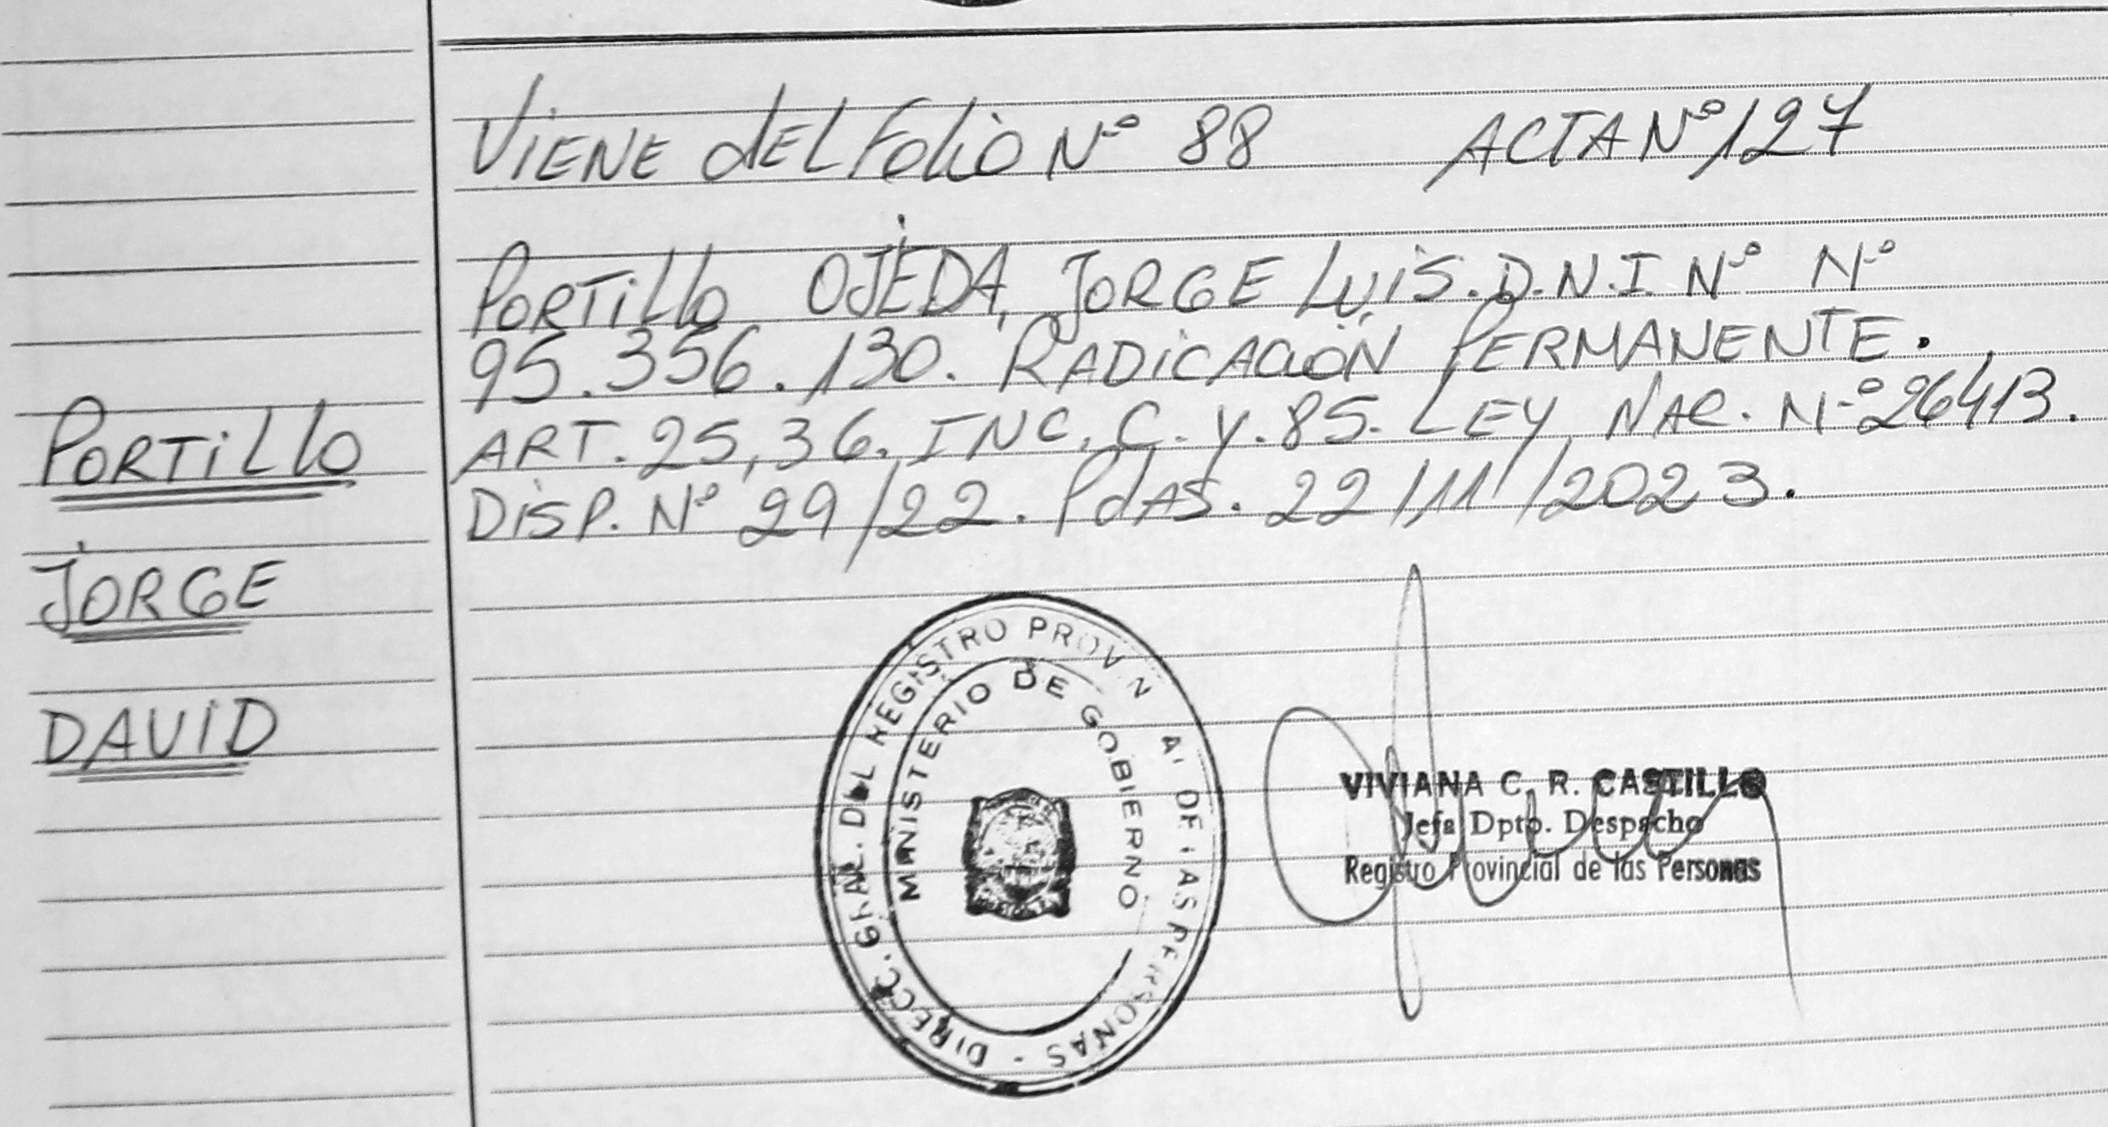 ViENE dEL Folio Nº 88 ACTA Nº 127
PORTiLLO OJEDA, JORGE LUiS. D.N.I. Nº Nº
95.356.130. RADiCACiÓN PERMANENTE.
ART. 25, 36. INC. C. Y. 85. LEY, NAC. Nº 26413.
DiSP. Nº 29/22. PdAS. 22/11/2023.
PORTiLLO
JORGE
DAViD
DIRECC. GRAL. DEL REGISTRO PROVINCIAL DE LAS PERSONAS -
MINISTERIO DE GOBIERNO
VIVIANA C. R. CASTILLO
Jefa Dpto. Despacho
Registro Provincial de las Personas